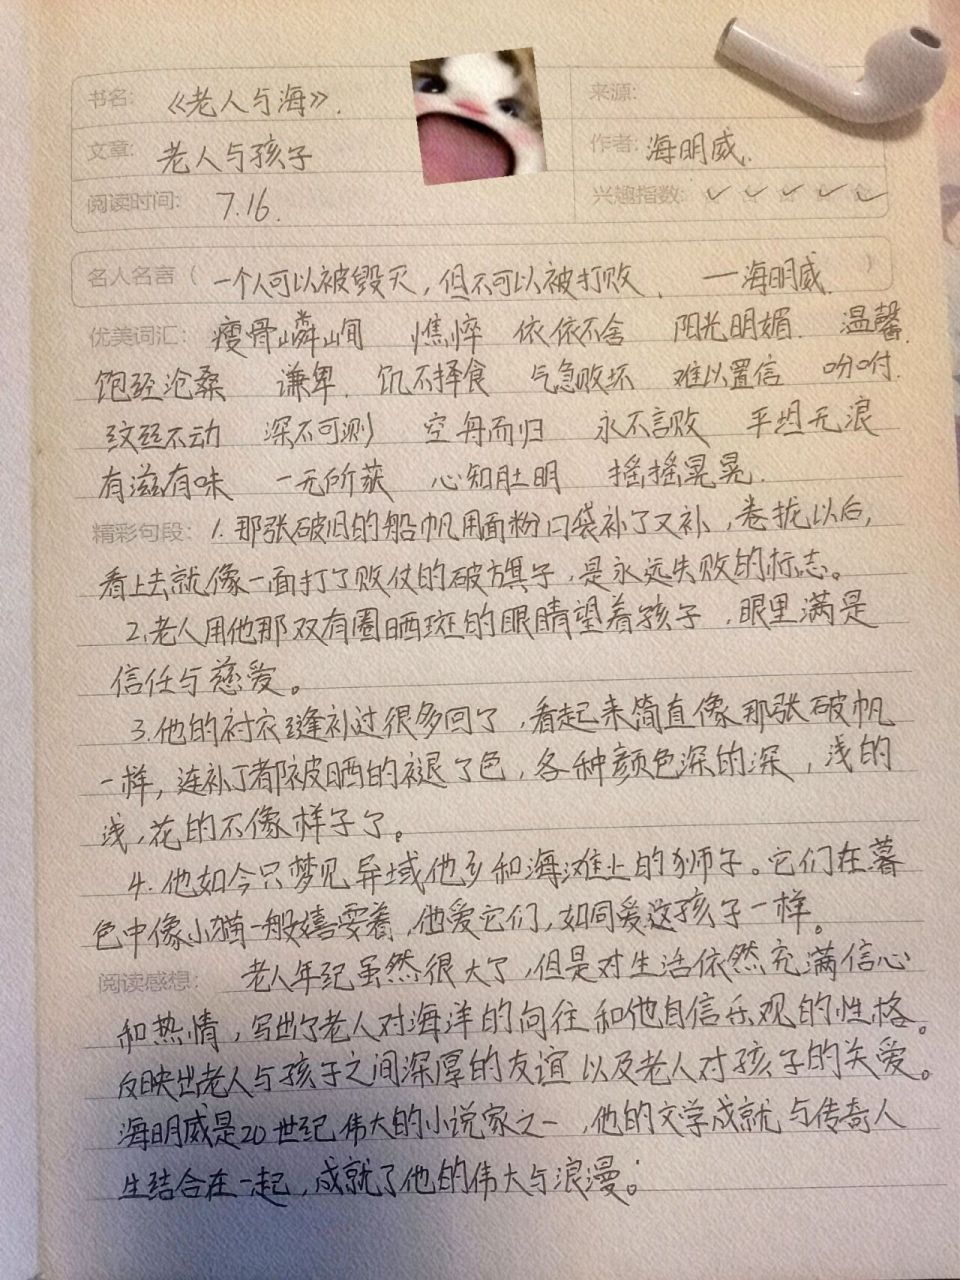 书名: 《老人与海》.
来源:
文章: 老人与孩子
作者: 海明威.
阅读时间: 7.16.
兴趣指数:
名人名言（ 一个人可以被毁灭，但不可以被打败. ——海明威. ）
优美词汇: 瘦骨嶙峋 憔悴 依依不舍 阳光明媚. 温馨.
饱经沧桑 谦卑. 饥不择食 气急败坏 难以置信 吩咐.
纹丝不动 深不可测 空舟而归 永不言败 平坦无浪
有滋有味 一无所获 心知肚明 摇摇晃晃.
精彩句段: 1.那张破旧的船帆用面粉口袋补了又补，卷拢以后，
看上去就像一面打了败仗的破旗子，是永远失败的标志。
2.老人用他那双有圈晒斑的眼睛望着孩子，眼里满是
信任与慈爱。
3.他的衬衣缝补过很多回了，看起来简直像那张破帆
一样，连补丁都被晒的褪了色，各种颜色深的深，浅的
浅，花的不像样子了。
4.他如今只梦见异域他乡和海滩上的狮子。它们在暮
色中像小猫一般嬉耍着，他爱它们，如同爱这孩子一样。
阅读感想: 老人年纪虽然很大了，但是对生活依然充满信心
和热情，写出了老人对海洋的向往和他自信乐观的性格。
反映出老人与孩子之间深厚的友谊以及老人对孩子的关爱。
海明威是20世纪伟大的小说家之一，他的文学成就与传奇人
生结合在一起，成就了他的伟大与浪漫。